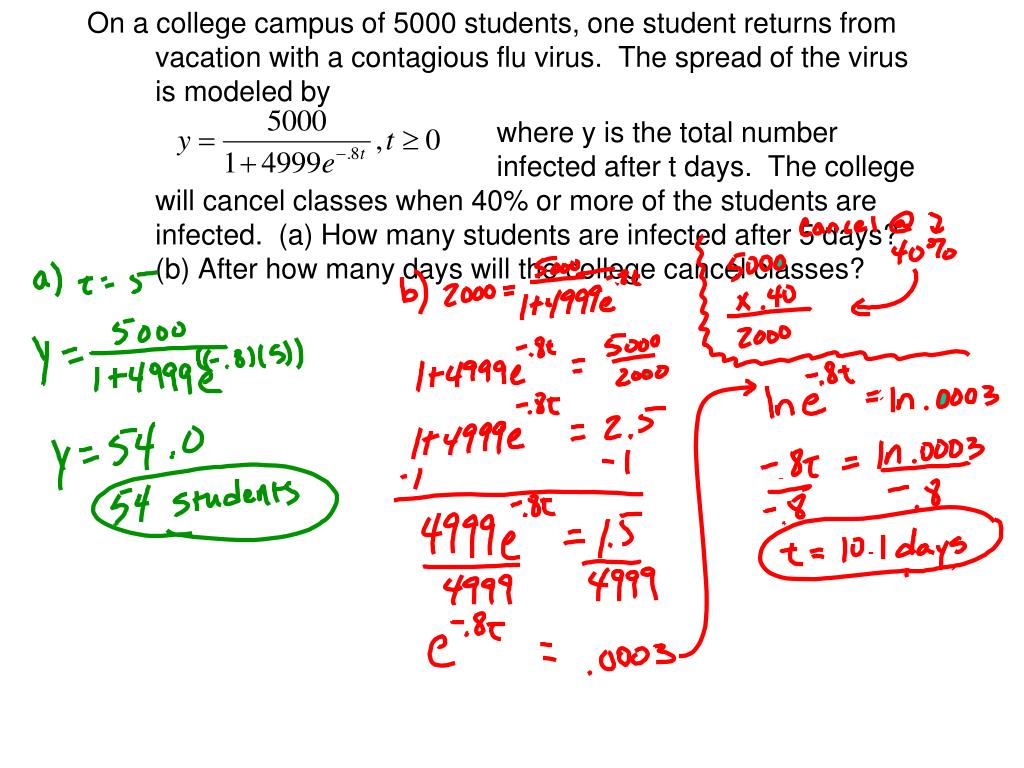 On a college campus of 5000 students, one student returns from
vacation with a contagious flu virus. The spread of the virus
is modeled by
y = 5000 / (1 + 4999e^(-.8t)) , t ≥ 0 where y is the total number
infected after t days. The college
will cancel classes when 40% or more of the students are
infected. (a) How many students are infected after 5 days?
(b) After how many days will the college cancel classes?
a) t = 5
y = 5000 / (1+4999e^((-.8)(5)))
y = 54.0
54 students
b) 2000 = 5000 / (1+4999e^(-.8t))
1+4999e^(-.8t) = 5000/2000
1+4999e^(-.8t) = 2.5
-1 -1
4999e^(-.8t) = 1.5
4999 4999
e^(-.8t) = .0003
cancel @
40%
5000
x .40
2000
ln e^(-.8t) = ln .0003
-.8t = ln .0003
-.8 -.8
t = 10.1 days